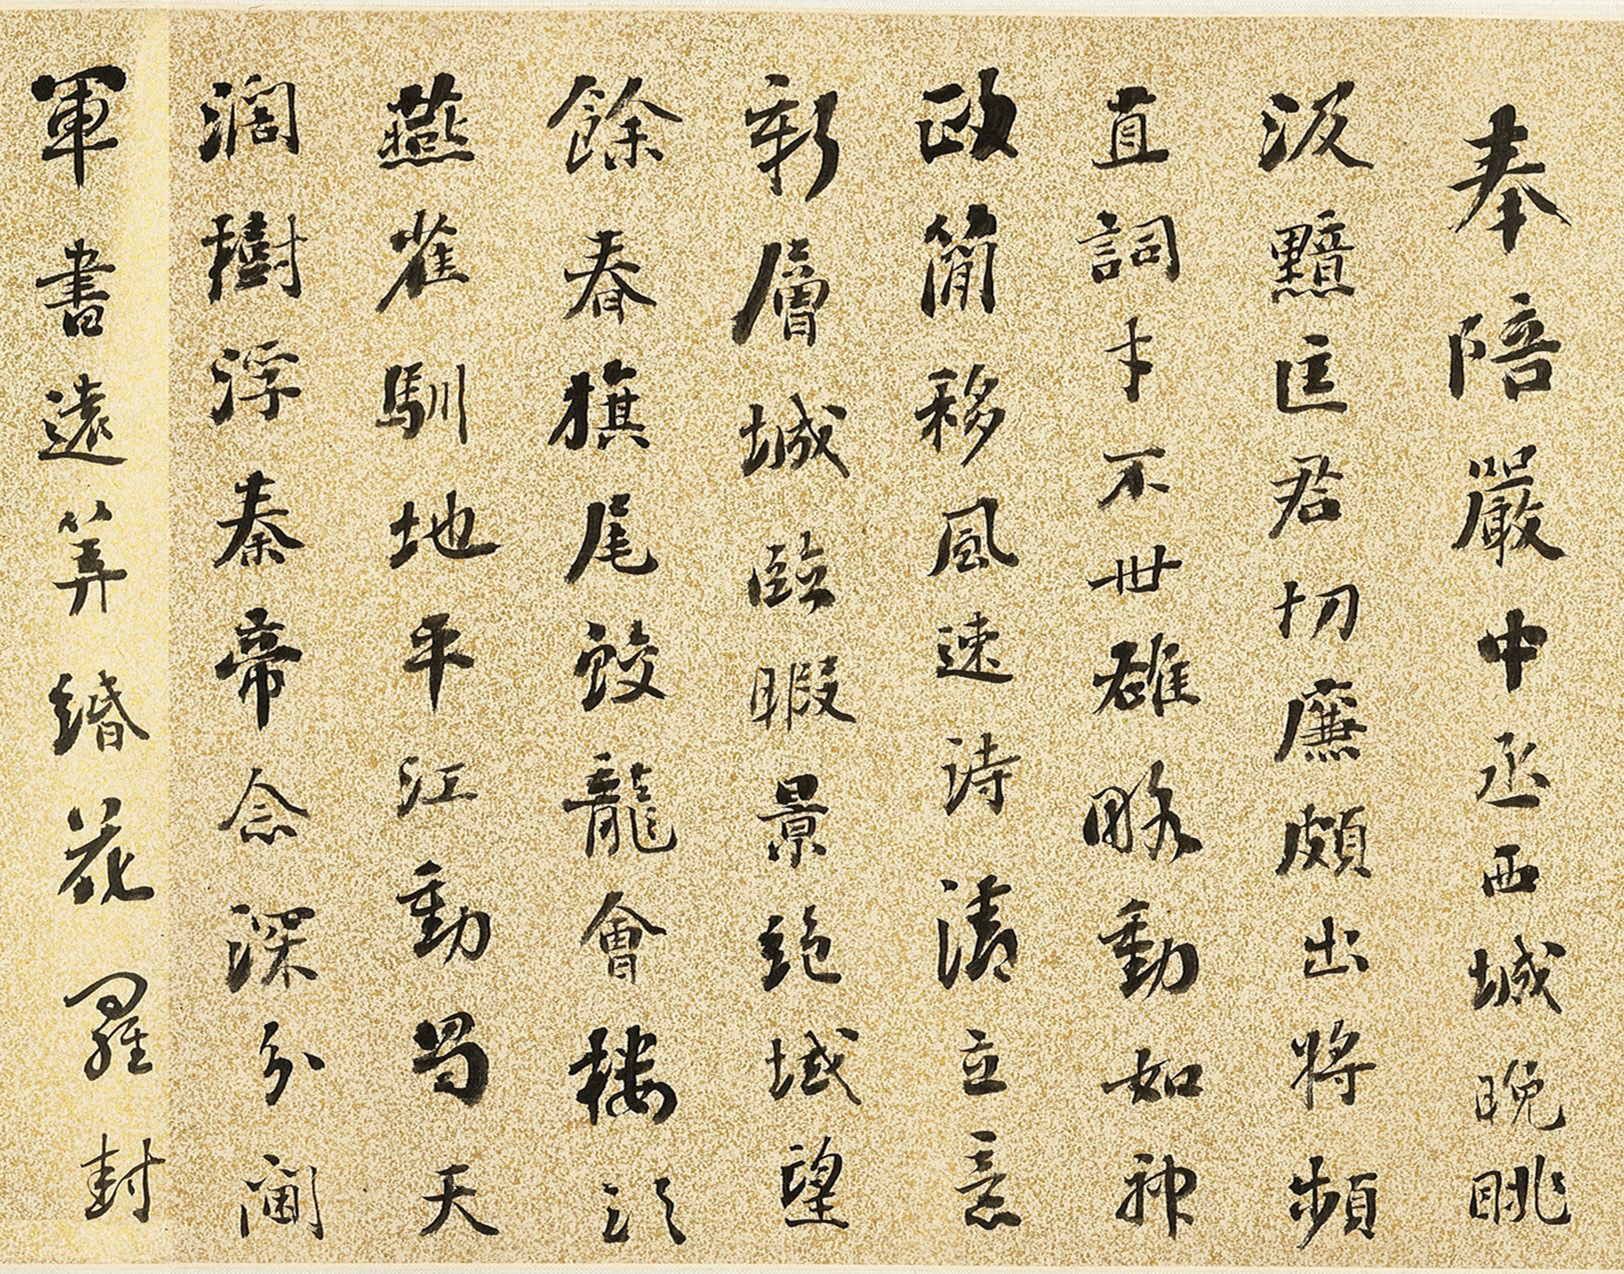 奉陪嚴中丞西城晚眺
汲黯匡君切廉頗出將頻
直詞才不世雄略動如神
政簡移風速詩清立意
新層城臨暇景絕域望
餘春旗尾蛟龍會樓頭
燕雀馴地平江動蜀天
濶樹浮秦帝念深分閫
軍書遠筭緡花羅封